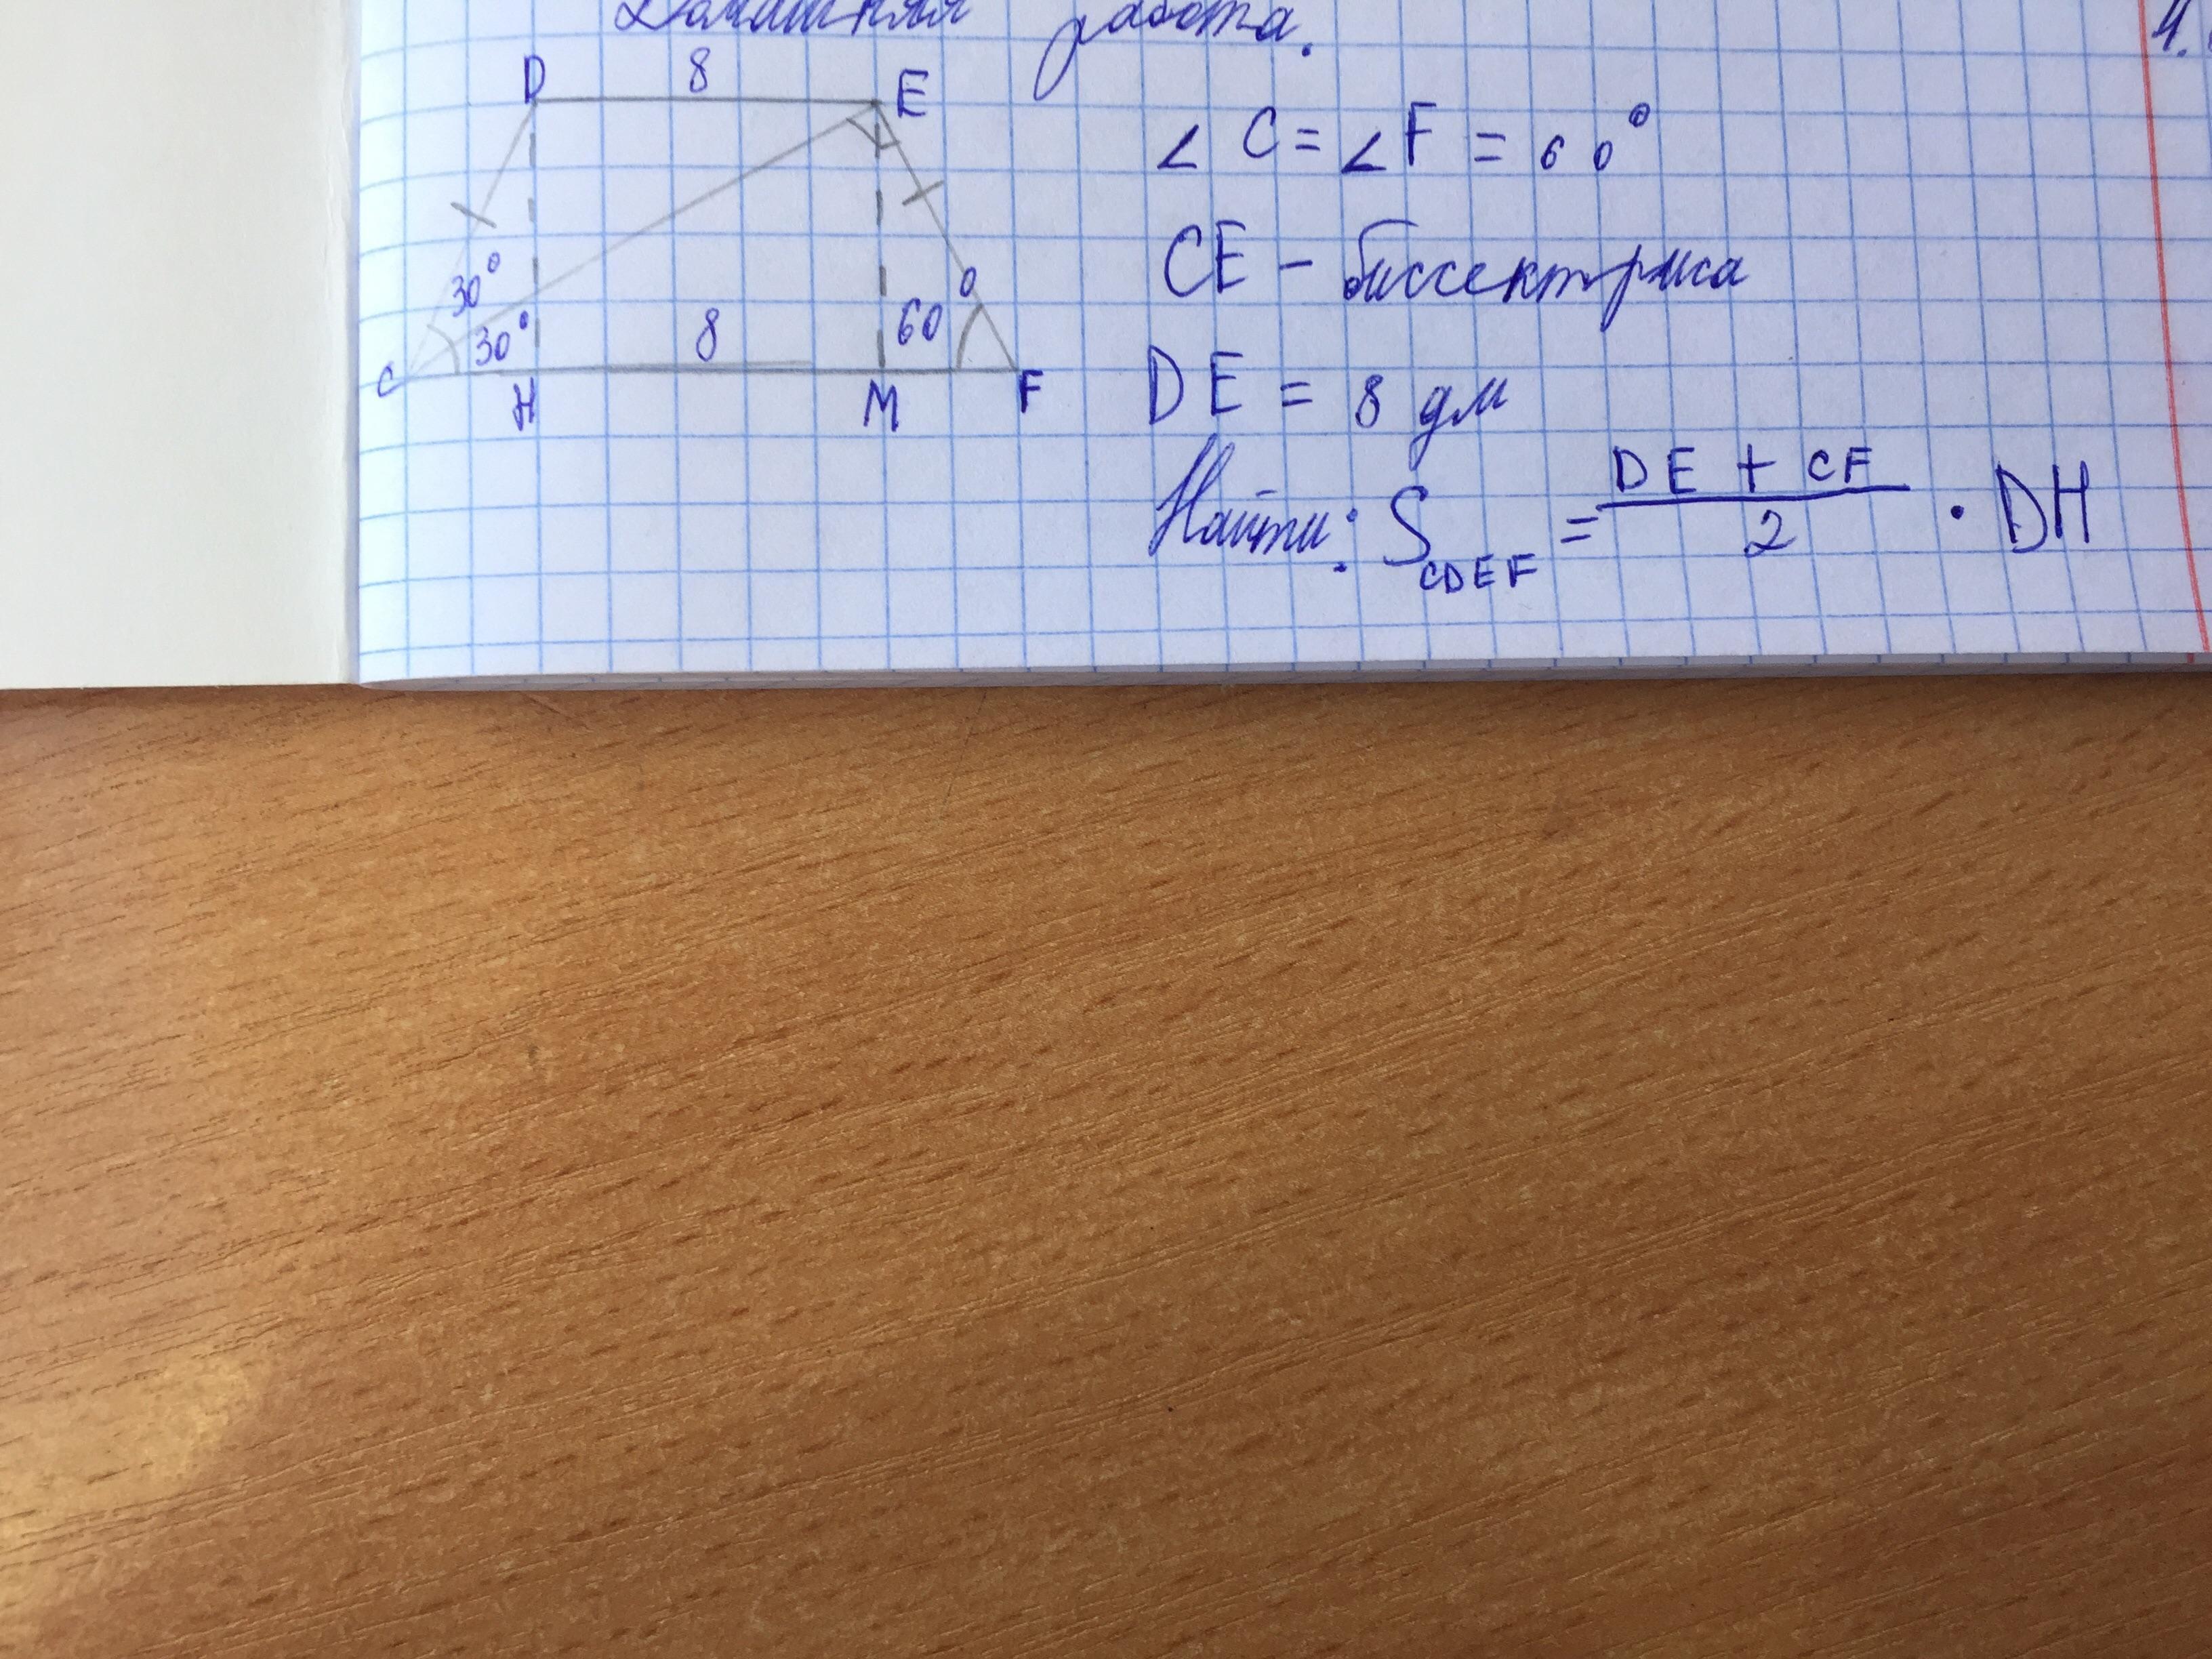 Домашняя работа.
D 8 E
30°
30° 8 60°
C H M F
∠ C = ∠ F = 60°
CE – биссектриса
DE = 8 дм
Найти: S_CDEF = (DE + CF)/2 · DH